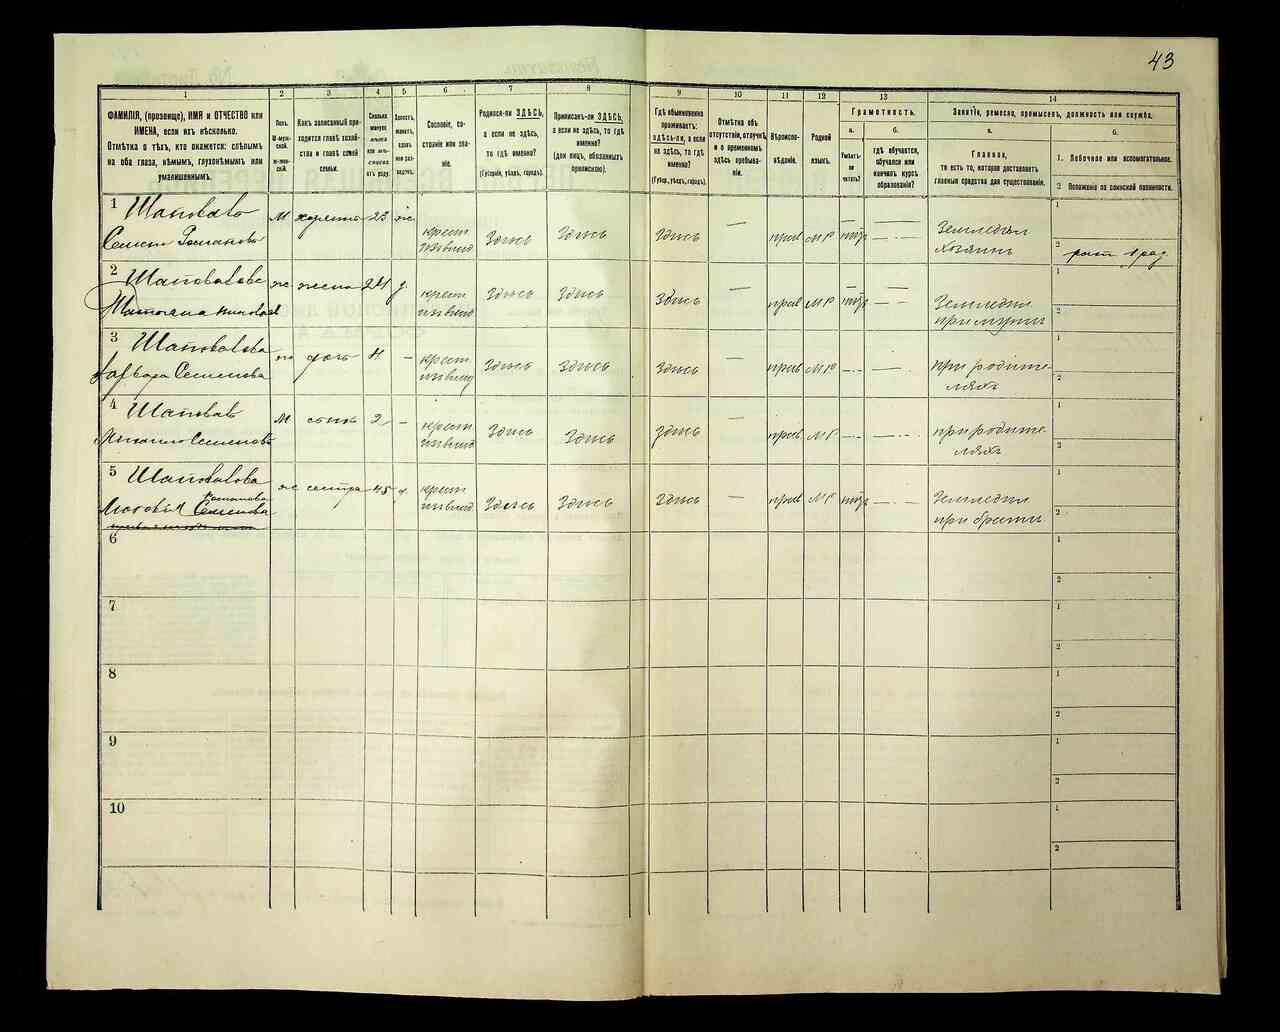 43
1 2 3 4 5 6 7 8 9 10 11 12 13 14
ФАМИЛІЯ, (прозвище), ИМЯ и ОТЧЕСТВО или
ИМЕНА, если ихъ нѣсколько.
Отмѣтка о тѣхъ, кто окажется: слѣпымъ
на оба глаза, нѣмымъ, глухонѣмымъ или
умалишеннымъ.
Полъ.
М-муж-
ской.
Ж-жен-
скій.
Какъ записанный при-
ходится главѣ хозяй-
ства и главѣ своей
семьи.
Сколько
минуло
лѣтъ
или мѣ-
сяцевъ
отъ роду.
Холостъ,
женатъ,
вдовъ
или раз-
веденъ.
Сословіе, со-
стояніе или зва-
ніе.
Родился-ли ЗДѢСЬ,
а если не здѣсь,
то гдѣ именно?
(Губернія, уѣздъ, городъ).
Приписанъ-ли ЗДѢСЬ,
а если не здѣсь, то гдѣ
именно?
(для лицъ, обязанныхъ
припиской).
Гдѣ обыкновенно
проживаетъ:
здѣсь-ли, а если
не здѣсь, то гдѣ
именно?
(Губер., уѣздъ, городъ).
Отмѣтка объ
отсутствіи, отлучкѣ
и о временномъ
здѣсь пребыва-
ніи.
Вѣроиспо-
вѣданіе.
Родной
языкъ.
Грамотность.
а. б.
Умѣетъ-
ли
читать?
гдѣ обучается,
обучался или
кончилъ курсъ
образованія?
Занятіе, ремесло, промыселъ, должность или служба.
а. б.
Главное,
то есть то, которое доставляетъ
главныя средства для существованія.
1. Побочное или вспомогательное.
2 Положеніе по воинской повинности.
1 Шаповалъ м хозяинъ 23 ж. крест Здѣсь Здѣсь Здѣсь — прав мр — — Земледѣл 1
Семенъ Романовъ хозяинъ 2
2 Шаповалова ж жена 24 крест Здѣсь Здѣсь Здѣсь — прав мр — — Земледѣл 1
Татьяна при мужѣ 2
3 Шаповалова дочь 4 — крест Здѣсь Здѣсь Здѣсь — прав мр — — при родите- 1
Варвара Семенова ляхъ 2
4 Шаповалъ м сынъ 2 — крест Здѣсь Здѣсь Здѣсь — прав мр — — при родите- 1
Михаило Семеновъ ляхъ 2
5 Шаповалова ж сестра 45 крест Здѣсь Здѣсь Здѣсь — прав мр — — Земледѣл 1
Романова
Семенова при братѣ 2
6 1
2
7 1
2
8 1
2
9 1
2
10 1
2